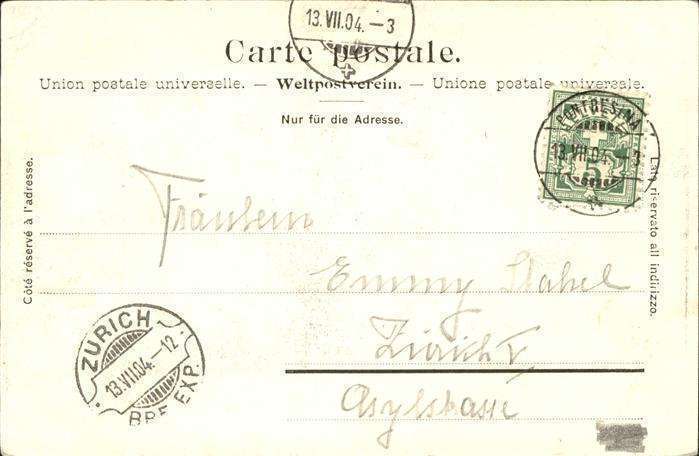 13.VII.04.–3
Carte postale.
Union postale universelle. — Weltpostverein. — Unione postale universale.
Nur für die Adresse.
PONTRESINA
13.VII.04.–3
5
Côté réservé à l'adresse.
Lato riservato all indirizzo.
Fräulein
Emmy Stahel
Zürich V
Asylstrasse
ZÜRICH
13.VII.04.–12
BRF. EXP.